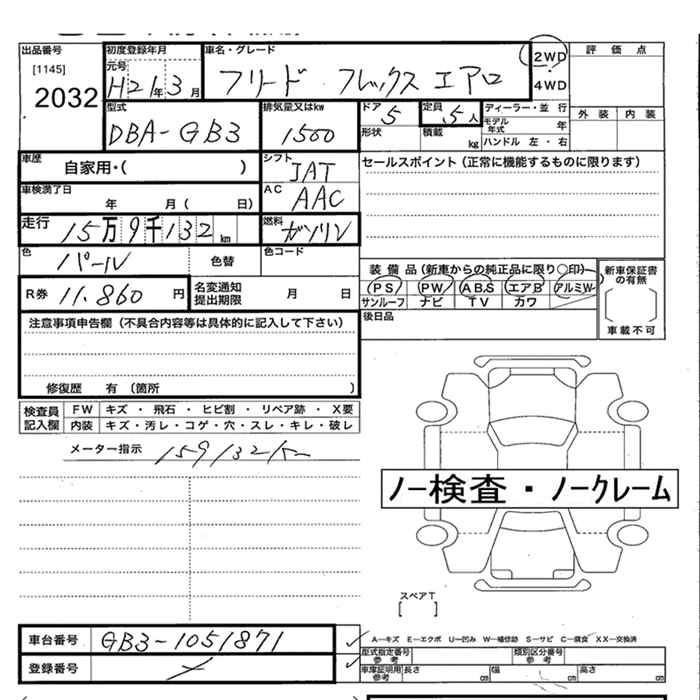 出品番号 初度登録年月 車名・グレード 2WD 評価点
[1145] 元号 H21年3月 フリード フレックス エアロ 4WD
2032
型式 排気量又はkw ドア 5 定員 5人 ディーラー・並行 外装 内装
DBA-GB3 1500 形状 積載 kg モデル年式 年
ハンドル 左・右
車歴 自家用・( ) シフト IAT セールスポイント(正常に機能するものに限ります)
車検満了日 年 月( 日) AC AAC
走行 15万9千132km 燃料 ガソリン
色 パール 色替 色コード 装備品(新車からの純正品に限り○印) 新車保証書の有無
PS PW ABS エアB アルミW
R券 11.860円 名変通知提出期限 月 日 サンルーフ ナビ TV カワ ( )
後日品 車載不可
注意事項申告欄(不具合内容等は具体的に記入して下さい)
修復歴 有(箇所 )
検査員記入欄 FW キズ・飛石・ヒビ割・リペア跡・X要
内装 キズ・汚レ・コゲ・穴・スレ・キレ・破レ
メーター指示 159132km
ノー検査・ノークレーム
スペアT
[ ]
車台番号 GB3-1051871 A―キズ E―エクボ U―凹み W―補修跡 S―サビ C―腐食 XX―交換済
型式指定番号参考 類別区分番号参考
登録番号 車庫証明用参考 長さ cm 幅 cm 高さ cm